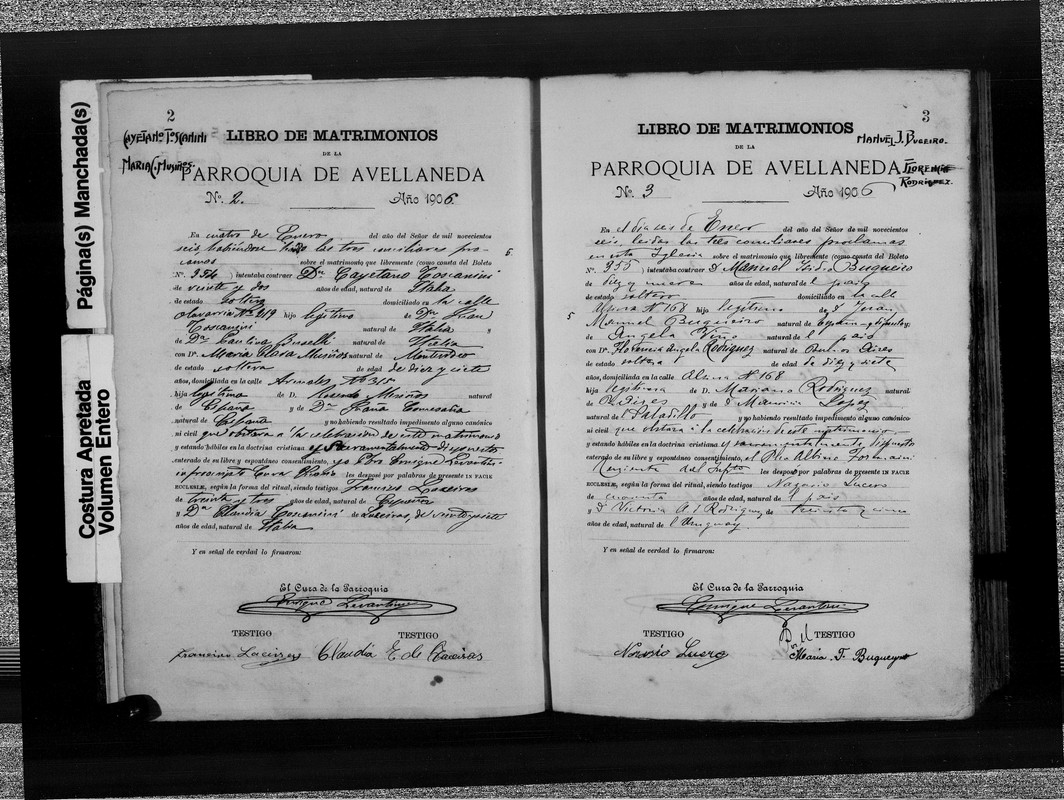 Página(s) Manchada(s)
Costura Apretada
Volumen Entero
2
Cayetano Toscanini
Maria C. Muiños.
LIBRO DE MATRIMONIOS
DE LA
PARROQUIA DE AVELLANEDA
No. 2. Año 1906.
En cuatro de Enero del año del Señor de mil novecientos
seis habiéndose las tres conciliares pro-
clamas sobre el matrimonio que libremente (como consta del Boleto
Nº. 354 ) intentaba contraer Dn. Cayetano Toscanini
de veinte y dos años de edad, natural de Italia
de estado soltero domiciliado en la calle
Olavarria Nº 219 hijo legítimo de Dn. Juan
Toscanini natural de Italia y
de Dª. Carolina natural de Italia
con Dª. Maria Rosa Muiños natural de Montevideo
de estado soltera de edad de diez y siete
años, domiciliada en la calle Arenales Nº 315
hija legítima de D. Rosendo Muiños natural
de España y de Dª. Juana
natural de España y no habiendo resultado impedimento alguno canónico
ni civil que obstara á la celebración de este matrimonio
y estando hábiles en doctrina cristiana y Sacramentalmente dispuestos
enterado de su libre y espontáneo consentimiento, yo Pbro. Enrique Levantini
infrascripto Cura Vicario les desposé por palabras de presente IN FACIE
ECCLESIÆ, según la forma del ritual, siendo testigos Francisco Laceiras
de treinta y tres años de edad, natural de España
y Dª Claudia Toscanini de Laceiras, de veinte y siete
años de edad, natural de Italia
Y en señal de verdad lo firmaron:
El Cura de la Parroquia
Enrique Levantini
TESTIGO TESTIGO
Francisco Laceiras Claudia E. de Laceiras
5
3
Manuel J. Bugeiro.
Florencia
Rodriguez.
LIBRO DE MATRIMONIOS
DE LA
PARROQUIA DE AVELLANEDA
No. 3 Año 1906
En el dia seis de Enero del año del Señor de mil novecientos
seis, leidas las tres conciliares proclamas
en esta Iglesia sobre el matrimonio que libremente (como consta del Boleto
Nº. 355 ) intentaba contraer D. Manuel Bugueiro
de diez y nueve años de edad, natural del pais
de estado soltero domiciliado en la calle
Alsina Nº 168 hijo legítimo de D.
5
Manuel Bugueiro natural de España y
de Angela natural del pais
con Dª. Florencia Angela Rodriguez natural de Buenos Aires
de estado soltera de edad de diez y siete
años, domiciliada en la calle Alsina Nº 168
hija legítima de D. Mariano Rodriguez natural
de y de Dª Mauricia Lopez
natural del Saladillo y no habiendo resultado impedimento alguno canónico
ni civil que obstara á la celebración de este matrimonio
y estando hábiles en doctrina cristiana y sacramentalmente dispuestos
enterado de su libre y espontáneo consentimiento, el Pbro Albino
les desposó por palabras de presente IN FACIE
ECCLESIÆ, según la forma del ritual, siendo testigos Nazario Lucero
de cuarenta años de edad, natural del pais
y Dª Victoria A. d Rodriguez, de treinta y cinco
años de edad, natural del Uruguay.
Y en señal de verdad lo firmaron:
El Cura de la Parroquia
Enrique Levantini
TESTIGO TESTIGO
Nazario Lucero Maria F. Bugueyro